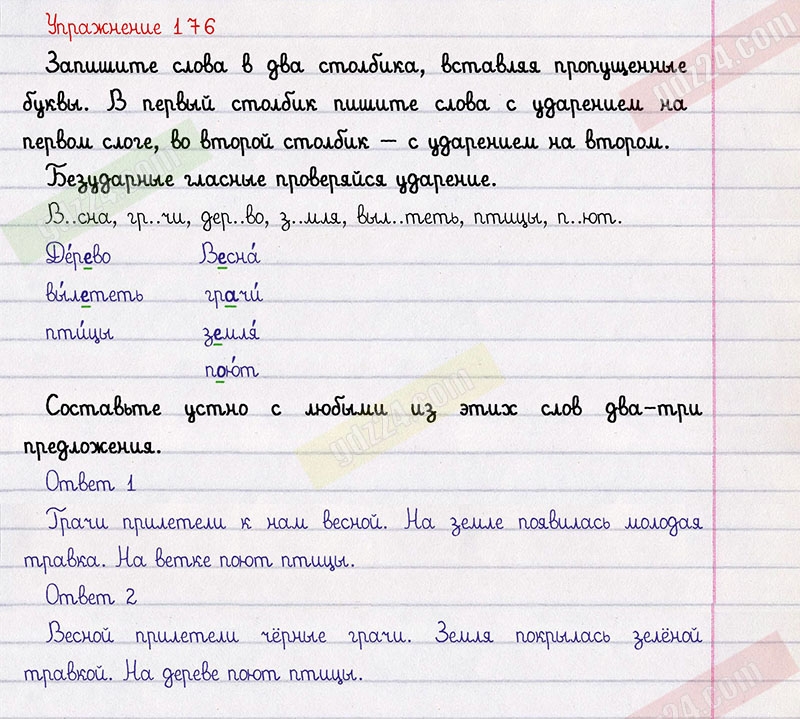 Упражнение 176
Запишите слова в два столбика, вставляя пропущенные
буквы. В первый столбик пишите слова с ударением на
первом слоге, во второй столбик – с ударением на втором.
Безударные гласные проверяйся ударение.
В..сна, гр..чи, дер..во, з..мля, выл..теть, птицы, п..ют.
Де́рево Весна́
вы́лететь грачи́
пти́цы земля́
пою́т
Составьте устно с любыми из этих слов два-три
предложения.
Ответ 1
Грачи прилетели к нам весной. На земле появилась молодая
травка. На ветке поют птицы.
Ответ 2
Весной прилетели чёрные грачи. Земля покрылась зелёной
травкой. На дереве поют птицы.
gdz24.com
gdz24.com
gdz24.com
gdz24.com